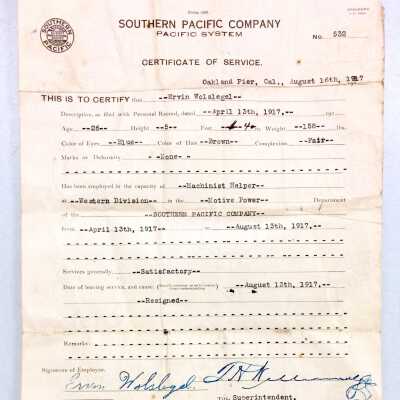 SOUTHERN PACIFIC
SOUTHERN PACIFIC COMPANY
PACIFIC SYSTEM
No. 532
CERTIFICATE OF SERVICE.
Oakland Pier, Cal., August 16th, 1917
THIS IS TO CERTIFY that --Ervin Wolslegel--
Descriptive, as filed with Personal Record, dated --April 13th, 1917,--
Age --26-- Height --5-- Feet 4 In. Weight --158-- lbs.
Color of Eyes --Blue-- Color of Hair --Brown-- Complexion --Fair--
Marks or Deformity --None--
Has been employed in the capacity of --Machinist Helper--
at --Western Division-- in the --Motive Power-- Department
of the --SOUTHERN PACIFIC COMPANY--
from --April 13th, 1917-- to --August 13th, 1917--
Services generally --Satisfactory--
Date of leaving service, and cause --August 13th, 1917--
--Resigned--
Remarks:
Signature of Employee.
Ervin Wolslegel
Superintendent.